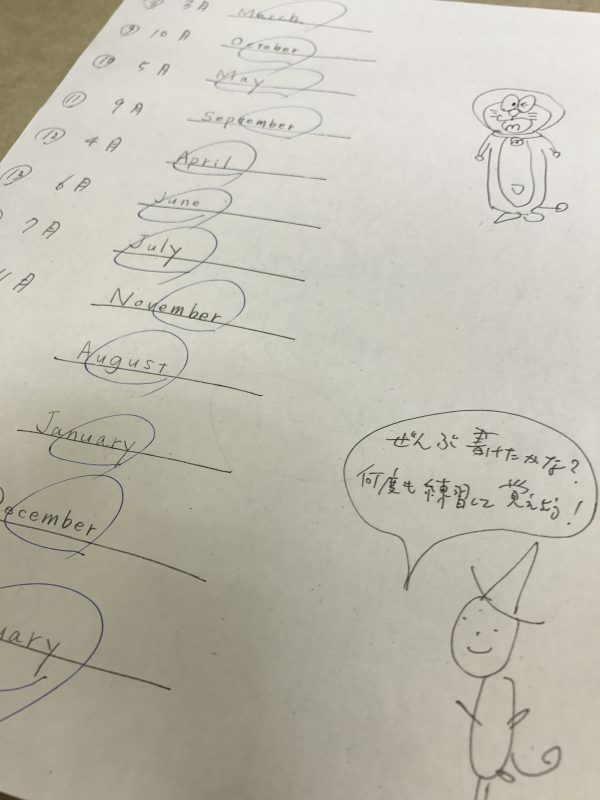 3月 March
⑨ 10月 October
⑩ 5月 May
⑪ 9月 September
⑫ 4月 April
⑬ 6月 June
7月 July
11月 November
August
January
December
uary
ぜんぶ書けたかな?
何度も練習して覚えよう!